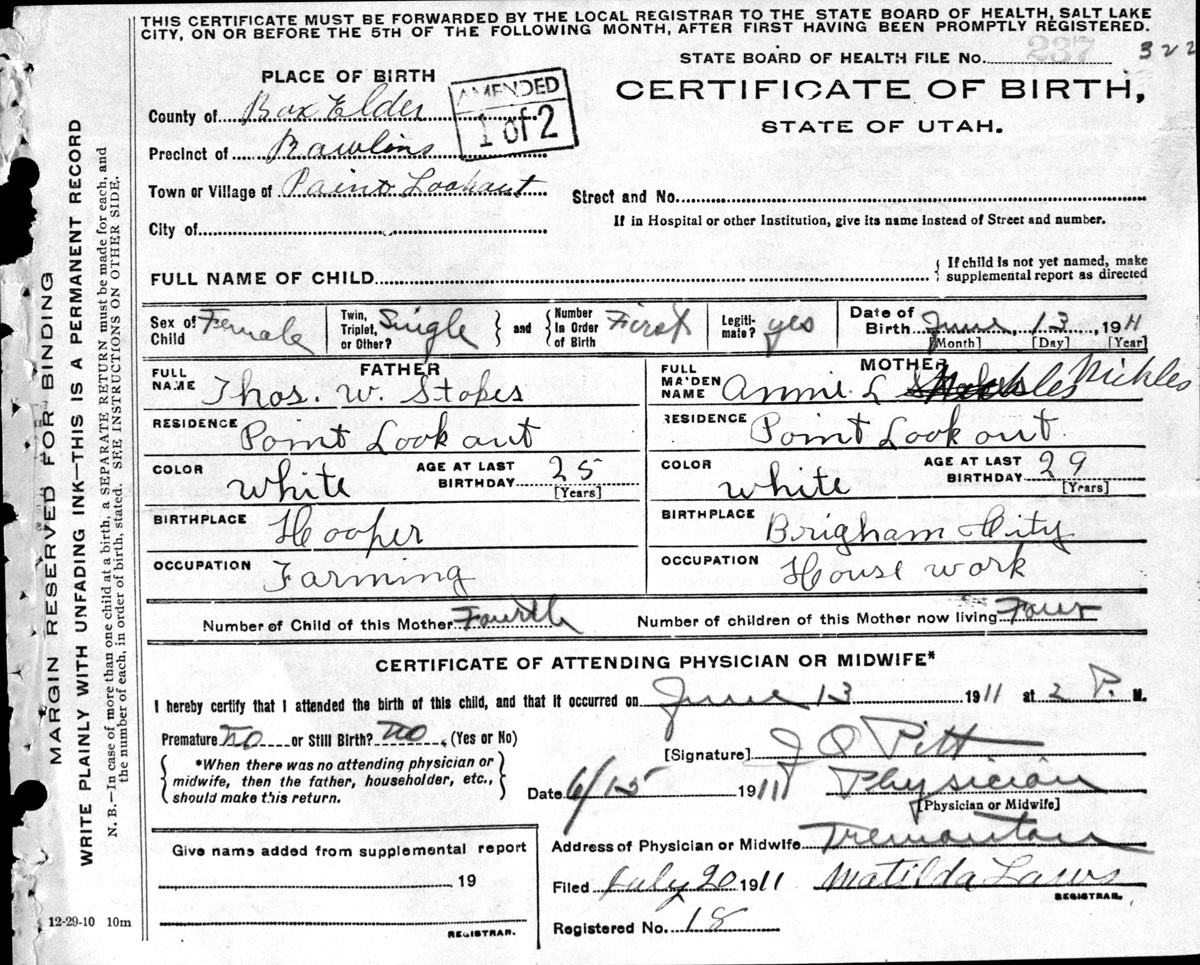 THIS CERTIFICATE MUST BE FORWARDED BY THE LOCAL REGISTRAR TO THE STATE BOARD OF HEALTH, SALT LAKE
CITY, ON OR BEFORE THE 5TH OF THE FOLLOWING MONTH, AFTER FIRST HAVING BEEN PROMPTLY REGISTERED.
STATE BOARD OF HEALTH FILE No. 237 322
PLACE OF BIRTH
AMENDED
1 of 2
CERTIFICATE OF BIRTH,
STATE OF UTAH.
County of Box Elder
Precinct of Rawlins
Town or Village of Point Lookout
Street and No.
City of
If in Hospital or other Institution, give its name instead of Street and number.
FULL NAME OF CHILD
{ If child is not yet named, make
supplemental report as directed
Sex of Child Female
Twin, Triplet, or Other? Single } and { Number In Order of Birth First
Legiti-mate? yes
Date of Birth June, 13 1911
[Month] [Day] [Year]
FATHER
FULL NAME Thos. W. Stokes
RESIDENCE Point Look out
COLOR White AGE AT LAST BIRTHDAY 25
[Years]
BIRTHPLACE Hooper
OCCUPATION Farming
MOTHER
FULL MAIDEN NAME Annie L Nickles
RESIDENCE Point Look out.
COLOR White AGE AT LAST BIRTHDAY 29
[Years]
BIRTHPLACE Brigham City
OCCUPATION House work
Number of Child of this Mother Fourth Number of children of this Mother now living Four
CERTIFICATE OF ATTENDING PHYSICIAN OR MIDWIFE*
I hereby certify that I attended the birth of this child, and that it occurred on June 13 1911 at 2 P. M.
Premature no or Still Birth? no, (Yes or No)
[Signature] J Q Pitt
{ *When there was no attending physician or
midwife, then the father, householder, etc.,
should make this return. }
Date 6/15 1911 Physician
[Physician or Midwife]
Address of Physician or Midwife Tremonton
Give name added from supplemental report
19
REGISTRAR.
Filed July 20 1911 Matilda Laws
REGISTRAR.
Registered No. 18
12-29-10 10m
MARGIN RESERVED FOR BINDING
WRITE PLAINLY WITH UNFADING INK—THIS IS A PERMANENT RECORD
N. B.—In case of more than one child at a birth, a SEPARATE RETURN must be made for each, and
the number of each, in order of birth, stated. SEE INSTRUCTIONS ON OTHER SIDE.